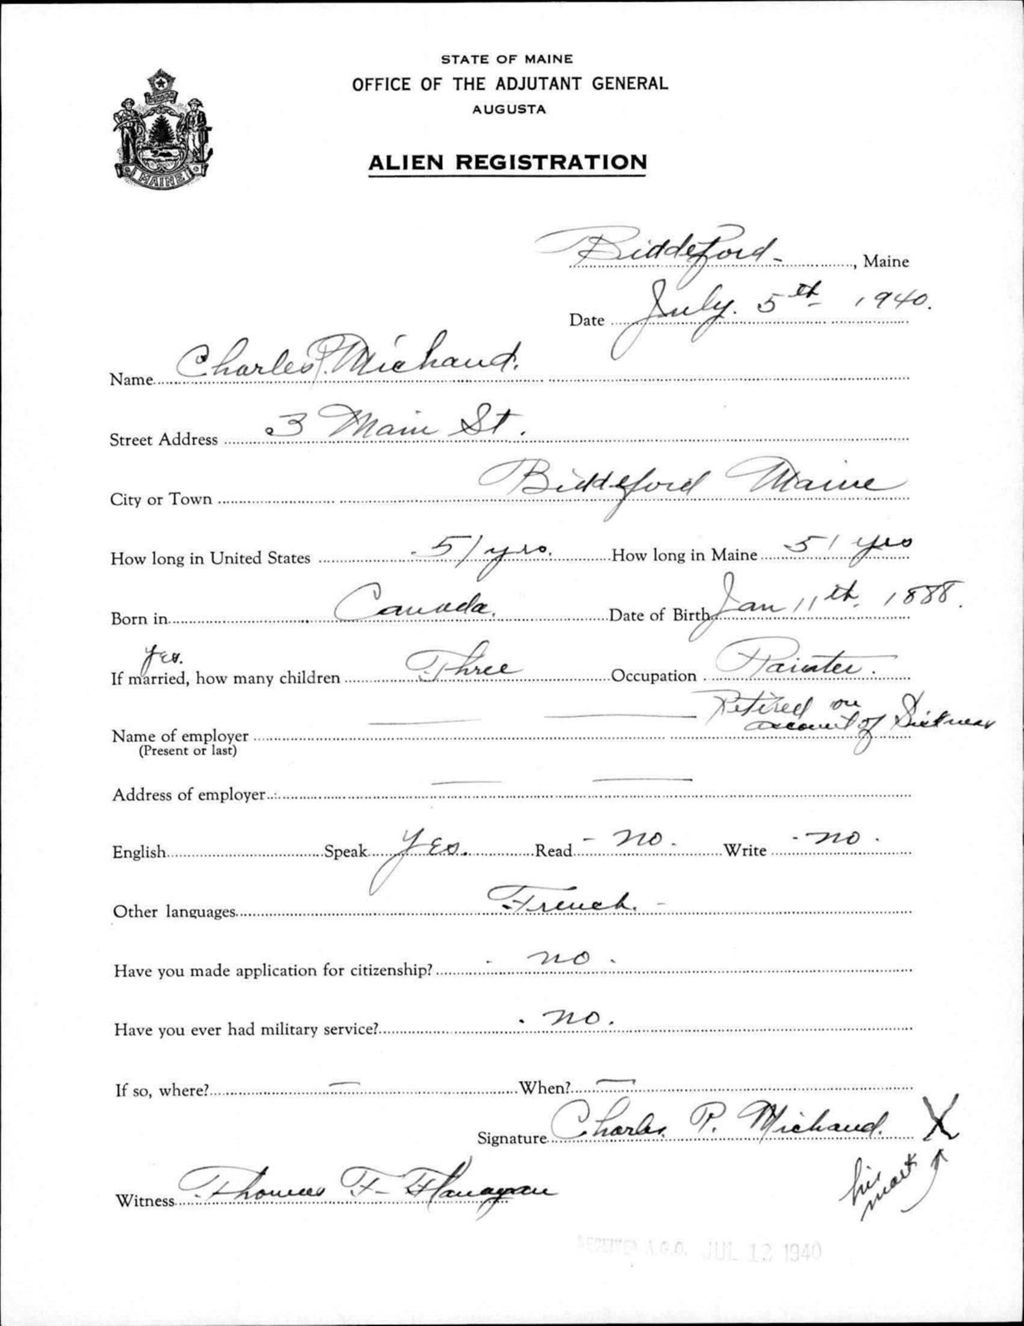 STATE OF MAINE
OFFICE OF THE ADJUTANT GENERAL
AUGUSTA
ALIEN REGISTRATION
MAINE
Biddeford - , Maine
Date July. 5th 1940.
Name Charles P. Michaud.
Street Address 3 Main St.
City or Town Biddeford Maine
How long in United States - 51 yrs. How long in Maine 51 yrs
Born in Canada. Date of Birth Jan 11th. 1888.
Yes.
If married, how many children Three Occupation Painter.
Retired on
account of Sickness
Name of employer
(Present or last)
Address of employer
English Speak Yes. Read - no. Write - no.
Other languages French. -
Have you made application for citizenship? - no.
Have you ever had military service? . no.
If so, where? — When? —
Signature Charles P. Michaud. X
his
mark
Witness Thomas F - Flanagan
RECEIVED A.G.O. JUL 12 1940